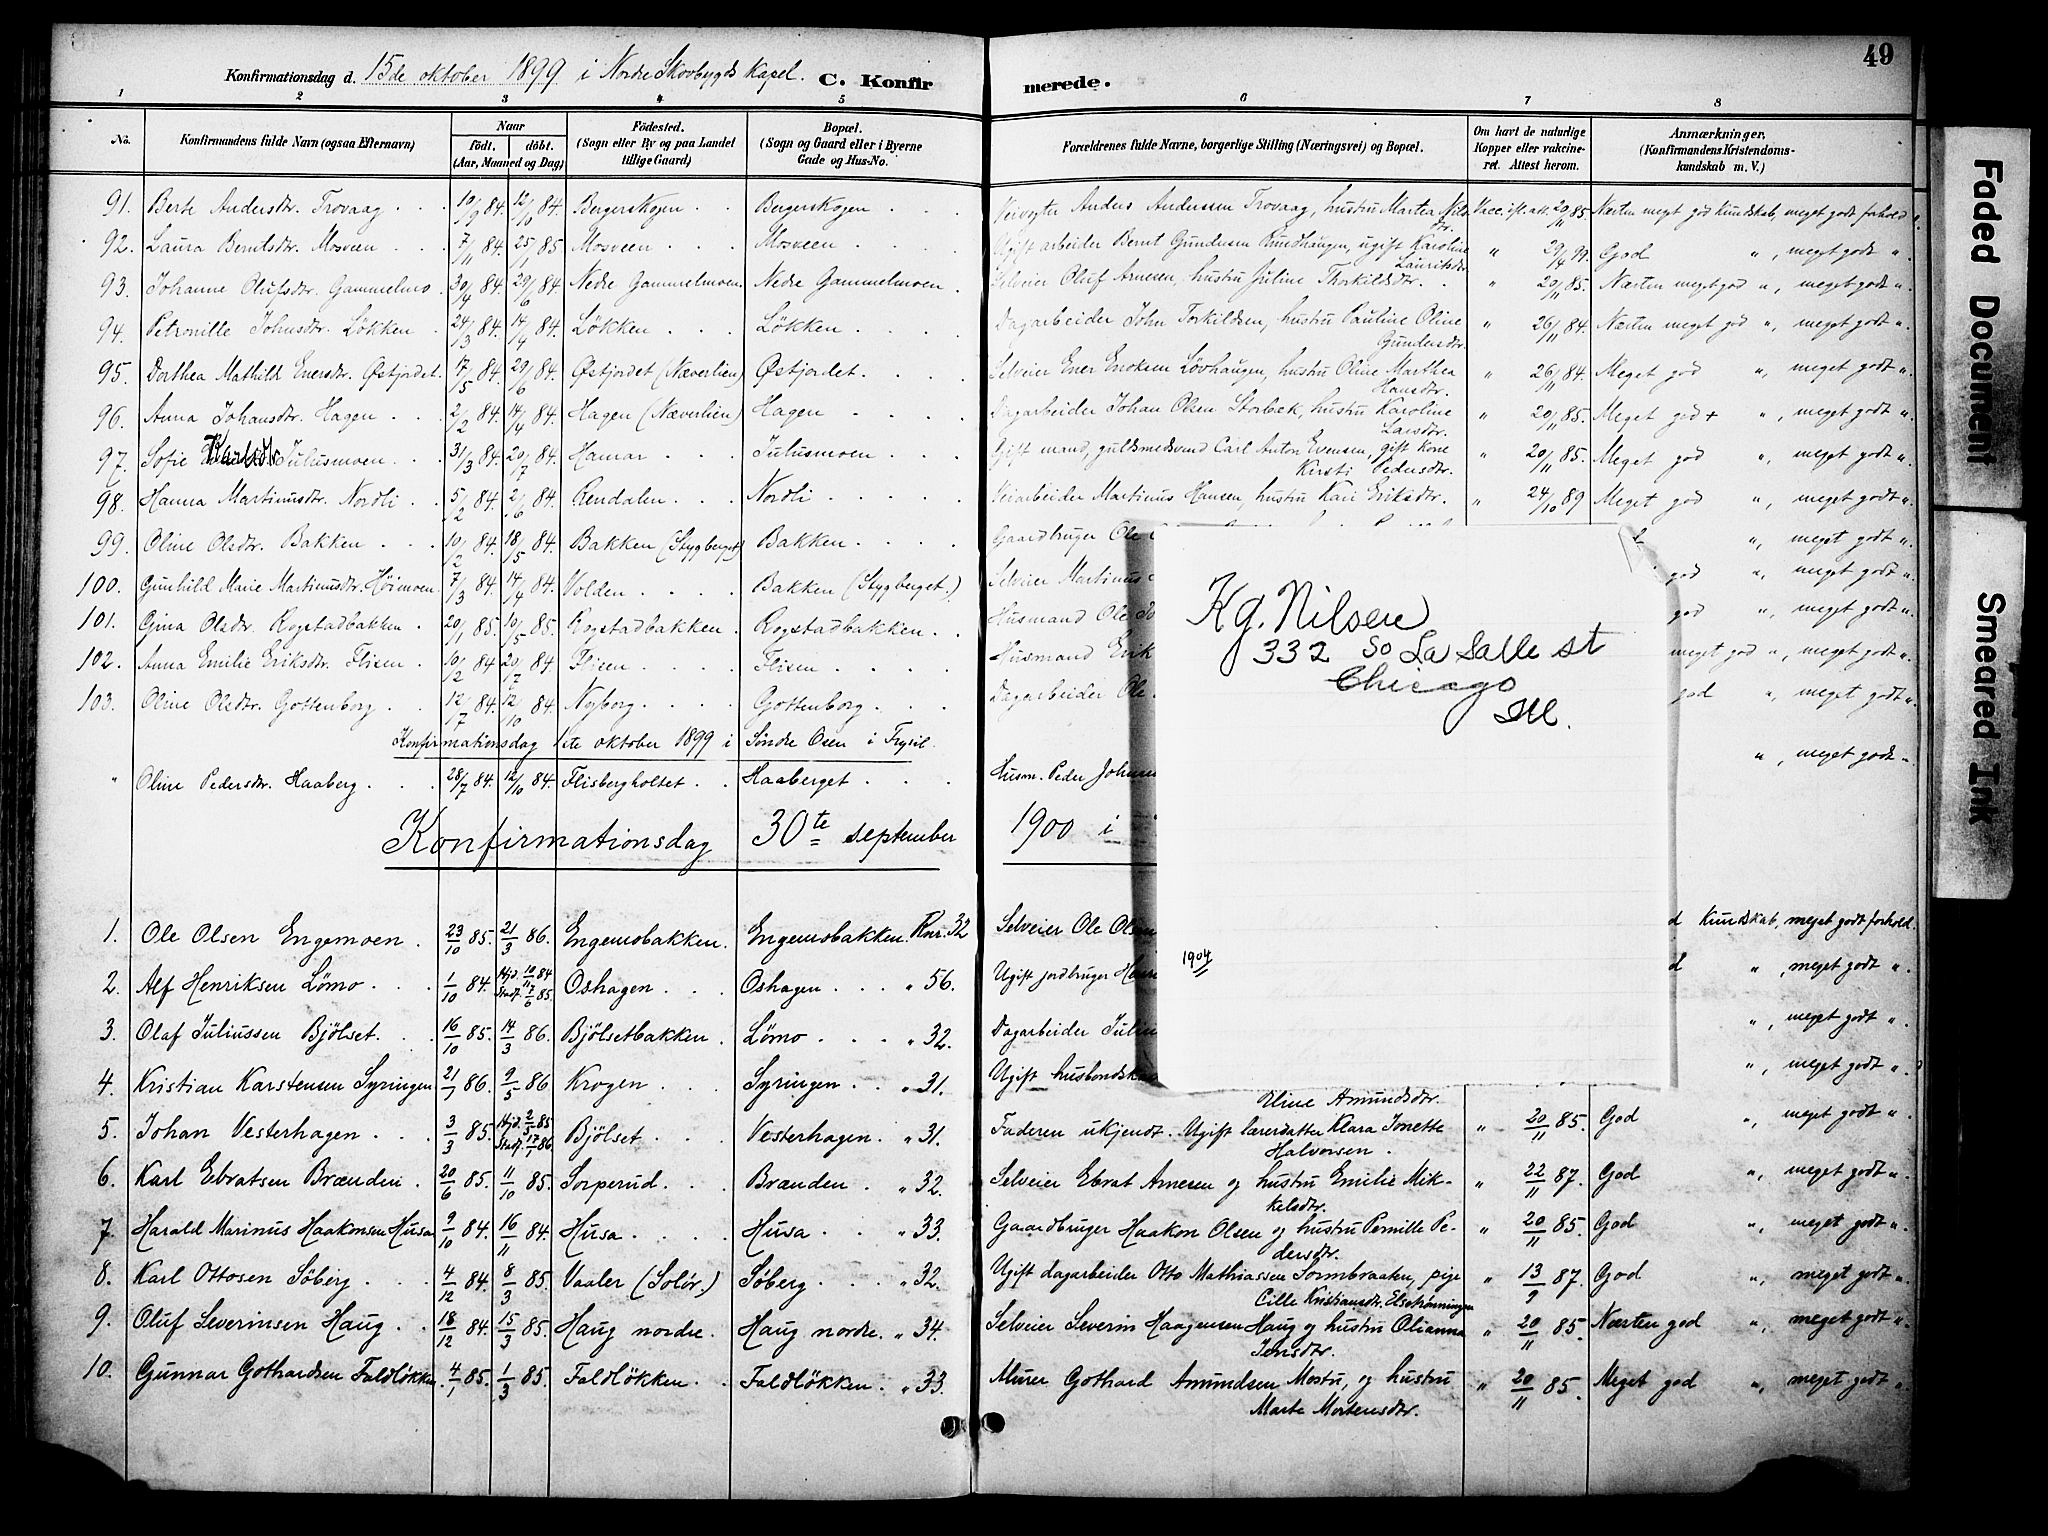 49
Konfirmationsdag d. 15de oktober 1899 i Nordre Skovbygds Kapel. C. Konfirmerede.
1 2 3 4 5 6 7 8
No. Konfirmandens fulde Navn (ogsaa Efternavn) Naar født, døbt. (Aar, Maaned og Dag) Fødested. (Sogn eller By og paa Landet tillige Gaard) Bopæl. (Sogn og Gaard eller i Byerne Gade og Hus-No. Forældrenes fulde Navne, borgerlige Stilling (Næringsvei) og Bopæl. Om havt de naturlige Kopper eller vakcineret. Attest herom. Anmærkninger. (Konfirmandens Kristendomskundskab m. V.)
91. Berte Andersdtr. Trovaag 10/9 84. 12/10 84. Bergerskogen Bergerskogen Veivogter Anders Andersen Trovaag, hustru Martea Nilsdtr. Vacc. ifl. att. 20/11 85. Næsten meget god Kundskab, meget godt forhold
92. Laura Berntsdtr. Mosveen 7/11 84. 25/1 85 Mosveen Mosveen Ugift arbeider Bernt Gundersen Rundhaugen, ugift Karoline Lauritsdtr. " 29/4 99. God ", meget godt ".
93. Johanne Olufsdtr. Gammelmo 30/4 84. 29/6 84. Nedre Gammelmoen. Nedre Gammelmoen. Selveier Oluf Arnesen, hustru Juline Thorkildsdtr. " 20/11 85. Næsten meget god ", meget godt ".
94. Petronille Johnsdtr. Løkken 24/3 84. 14/4 84. Løkken Løkken Dagarbeider John Torkildsen, hustru Pauline Oline Gundersdtr. " 26/11 84. Næsten meget god ", meget godt ".
95. Dorthea Mathild Enersdtr. Østjordet 17/5 84. 29/6 84. Østjordet (Næverlien) Østjordet Selveier Ener Ericksen Lövhaugen, hustru Oline Marthea Hansdtr. " 26/11 84. Meget god ", meget godt ".
96. Anna Johansdtr. Hagen 2/2 84. 14/4 84. Hagen (Næverlien) Hagen Dagarbeider Johan Olsen Storbæk, hustru Karoline Larsdtr. " 20/11 85. Meget god + ", meget godt ".
97. Sofie Karlsdtr. Julusmoen 31/3 84. 20/7 84. Hamar Julusmoen Gift mand, guldsmedsvend Carl Anton Evensen, gift Kone Kersti Pedersdtr. " 20/11 85. Meget god ", meget godt ".
98. Hanna Martinusdtr. Nordli 5/2 84. 2/6 84. Rendalen Nordli Veiarbeider Martinus Hansen, hustru Kari Eriksdtr. " 24/10 89 Meget god ", meget godt ".
99. Oline Olsdtr. Bakken 10/2 84. 18/5 84. Bakken (Stygberget) Bakken Gaardbruger Ole ", meget godt ".
100. Gunhild Marie Martinusdtr. Høimoen 7/3 84. 14/4 84. Volden Bakken (Stygberget.) Selveier Martinus god ", meget godt ".
101. Gina Olsdtr. Rogstadbakken 20/1 85. 10/5 85. Rogstadbakken Rogstadbakken Husmand Ole god ", meget godt ".
102. Anna Emilie Eriksdtr. Flisen 10/12 84 20/7 84 Flisen Flisen Husmand Erik meget god ", meget godt ".
103. Oline Olsdtr. Gottenborg 12/7 84. 12/10 84. Nyborg Gottenborg Dagarbeider Ole god ", meget godt ".
Konfirmationsdag 1ste oktober 1899 i Søndre Osen i Trysil.
" Oline Pedersdtr. Haaberg 28/7 84. 12/10 84. Flisbergholtet Haaberget Husm. Peder Johnsen ", meget godt "
Konfirmationsdag 30te september 1900 i
1. Ole Olsen Engemoen 23/10 85. 21/3 86. Engemobakken. Engemobakken. Rnr. 32 Selveier Ole Olsen Kundskab, meget godt forhold.
2. Alf Henriksen Lömo 1/10 84. Hjd. 10/11 84 Stadf. 17/6 85. Oshagen Oshagen " 56. Ugift jordbruger ", meget godt ".
3. Olaf Juliussen Bjölset. 16/10 85. 14/3 86. Bjölsetbakken Lömo " 32. Dagarbeider ", meget godt ".
4. Kristian Karstensen Syringen 21/1 86. 9/5 86 Krogen Syringen " 31. Ugift Oline Amundsdtr. ", meget godt ".
5. Johan Vesterhagen 3/3 85. Hjd. 2/5 85 Stadf. 17/1 86. Bjölset Vesterhagen " 31. Faderen ukjendt. Ugift lærerdatter Klara Jonette Halvorsen. " 20/11 85. God ", meget godt ".
6. Karl Ebratsen Brænden 20/6 85. 11/10 85. Sorperud. Brænden " 32. Selveier Ebrat Arnesen og hustru Emilie Mikkelsdtr. " 22/11 87. God ", meget godt ".
7. Harald Marinus Haakonsen Husa 9/10 84. 16/11 84. Husa Husa " 33. Gaardbruger Haakon Olsen og hustru Pernille Pedersdtr. " 20/11 85. God ", meget godt ".
8. Karl Ottosen Söberg 4/12 84. 8/3 85. Vaaler (Solör.) Söberg " 32. Ugift dagarbeider Otto Mathiassen Sormbraaten, pige Cille Kristiansdtr. Elsetrønningen " 13/9 87. God ", meget godt ".
9. Oluf Severinsen Haug 18/12 84. 15/3 85. Haug nordre. Haug nordre. " 34. Selveier Severin Haagensen Haug og hustru Olianna Jensdtr. " 20/11 85. Næsten god ", meget godt ".
10. Gunnar Gothardsen Faldløkken 4/1 85. 1/3 85. Faldløkken. Faldløkken. " 33. Murer Gothard Amundsen Mostu, og hustru Marte Mortensdtr. " 20/11 85. Meget god ", meget godt ".
Kg. Nilsen
332 So La Salle st
Chicago
Ill.
1904
Faded Document
Smeared Ink